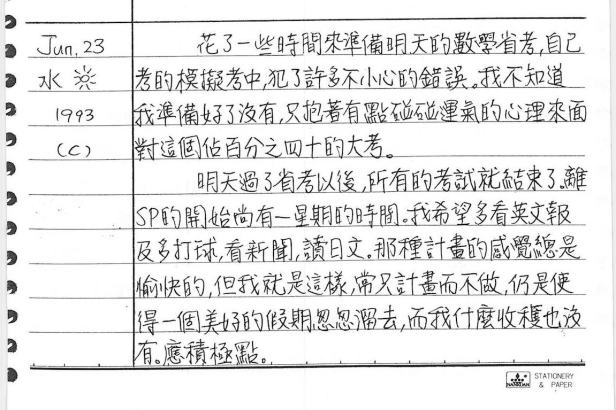 Jun. 23
水
1993
(C)
花了一些時間來準備明天的數學省考,自己
考的模擬考中,犯了許多不小心的錯誤。我不知道
我準備好了沒有,只抱著有點碰碰運氣的心理來面
對這個佔百分之四十的大考。
明天過了省考以後,所有的考試就結束了。離
SP的開始尚有一星期的時間。我希望多看英文報
及多打球,看新聞,讀日文。那種計畫的感覺總是
愉快的,但我就是這樣,常只計畫而不做,仍是使
得一個美好的假期忽忽溜去,而我什麼收穫也沒
有。應積極點。
STATIONERY
& PAPER